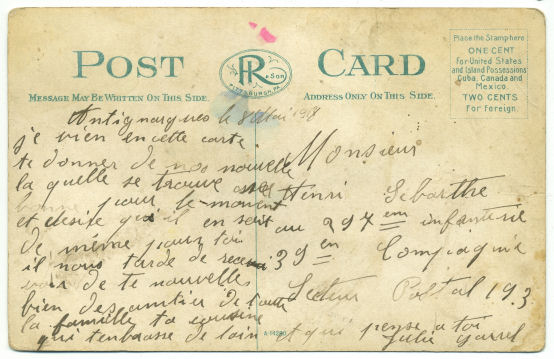 POST CARD
R & SON
PITTSBURGH, PA.
MESSAGE MAY BE WRITTEN ON THIS SIDE.
ADDRESS ONLY ON THIS SIDE.
Place the Stamp here
ONE CENT
For United States
and Island Possessions
Cuba, Canada and
Mexico.
TWO CENTS
For Foreign.
le 8 Mai 1918
je vien en cette carte
te donner de nos nouvelle
la quelle se trouve
bonne pour le moment
et desire qu'il en soit
de même pour toi
il nous tarde de
voir de te nouvelles
bien des amitier de toute
la famille ta cousine
qui tenbrasse de loin et qui pense a toi
Julie
A-14290
Monsieur
Henri Sebarthe
au 297 eme infanterie
39 en Compagnie
Secteur Postal 193